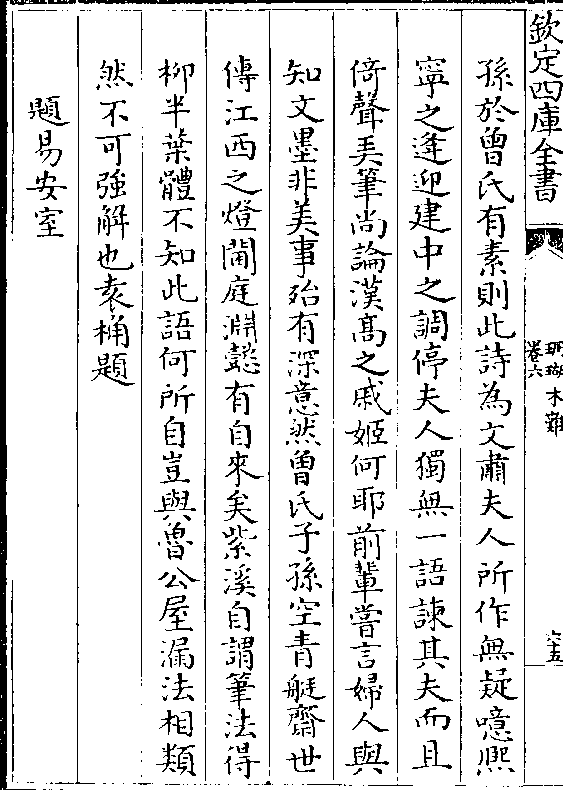 欽定四庫全書
珊瑚木難
卷六
六五
孫於曾氏有素則此詩為文肅夫人所作無疑噫熙
寧之逢迎建中之調停夫人獨無一語諫其夫而且
倚聲弄筆尚論漢髙之戚姬何耶前輩嘗言婦人與
知文墨非美事殆有深意然曾氏子孫空青艇齋世
傳江西之燈閫庭淵懿有自來矣紫溪自謂筆法得
柳半葉體不知此語何所自豈與魯公屋漏法相類
然不可強解也袁桷題
題易安室